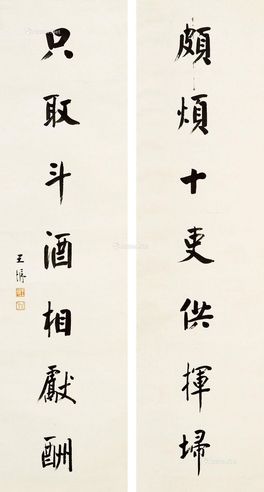 頗煩十吏供揮埽
只取斗酒相獻酬
王